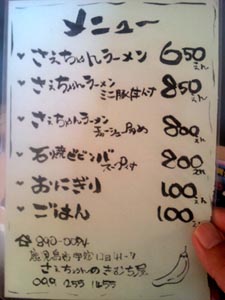 メニュー
さえちゃんラーメン 650えん
さえちゃんラーメン 850えん
ミニ豚丼付
さえちゃんラーメン 800えん
チャーシュー
石焼ビビンバ 800えん
スープ付
おにぎり 100えん
ごはん 100えん
〒890-0054
さえちゃんのきむち屋
099 255 1455